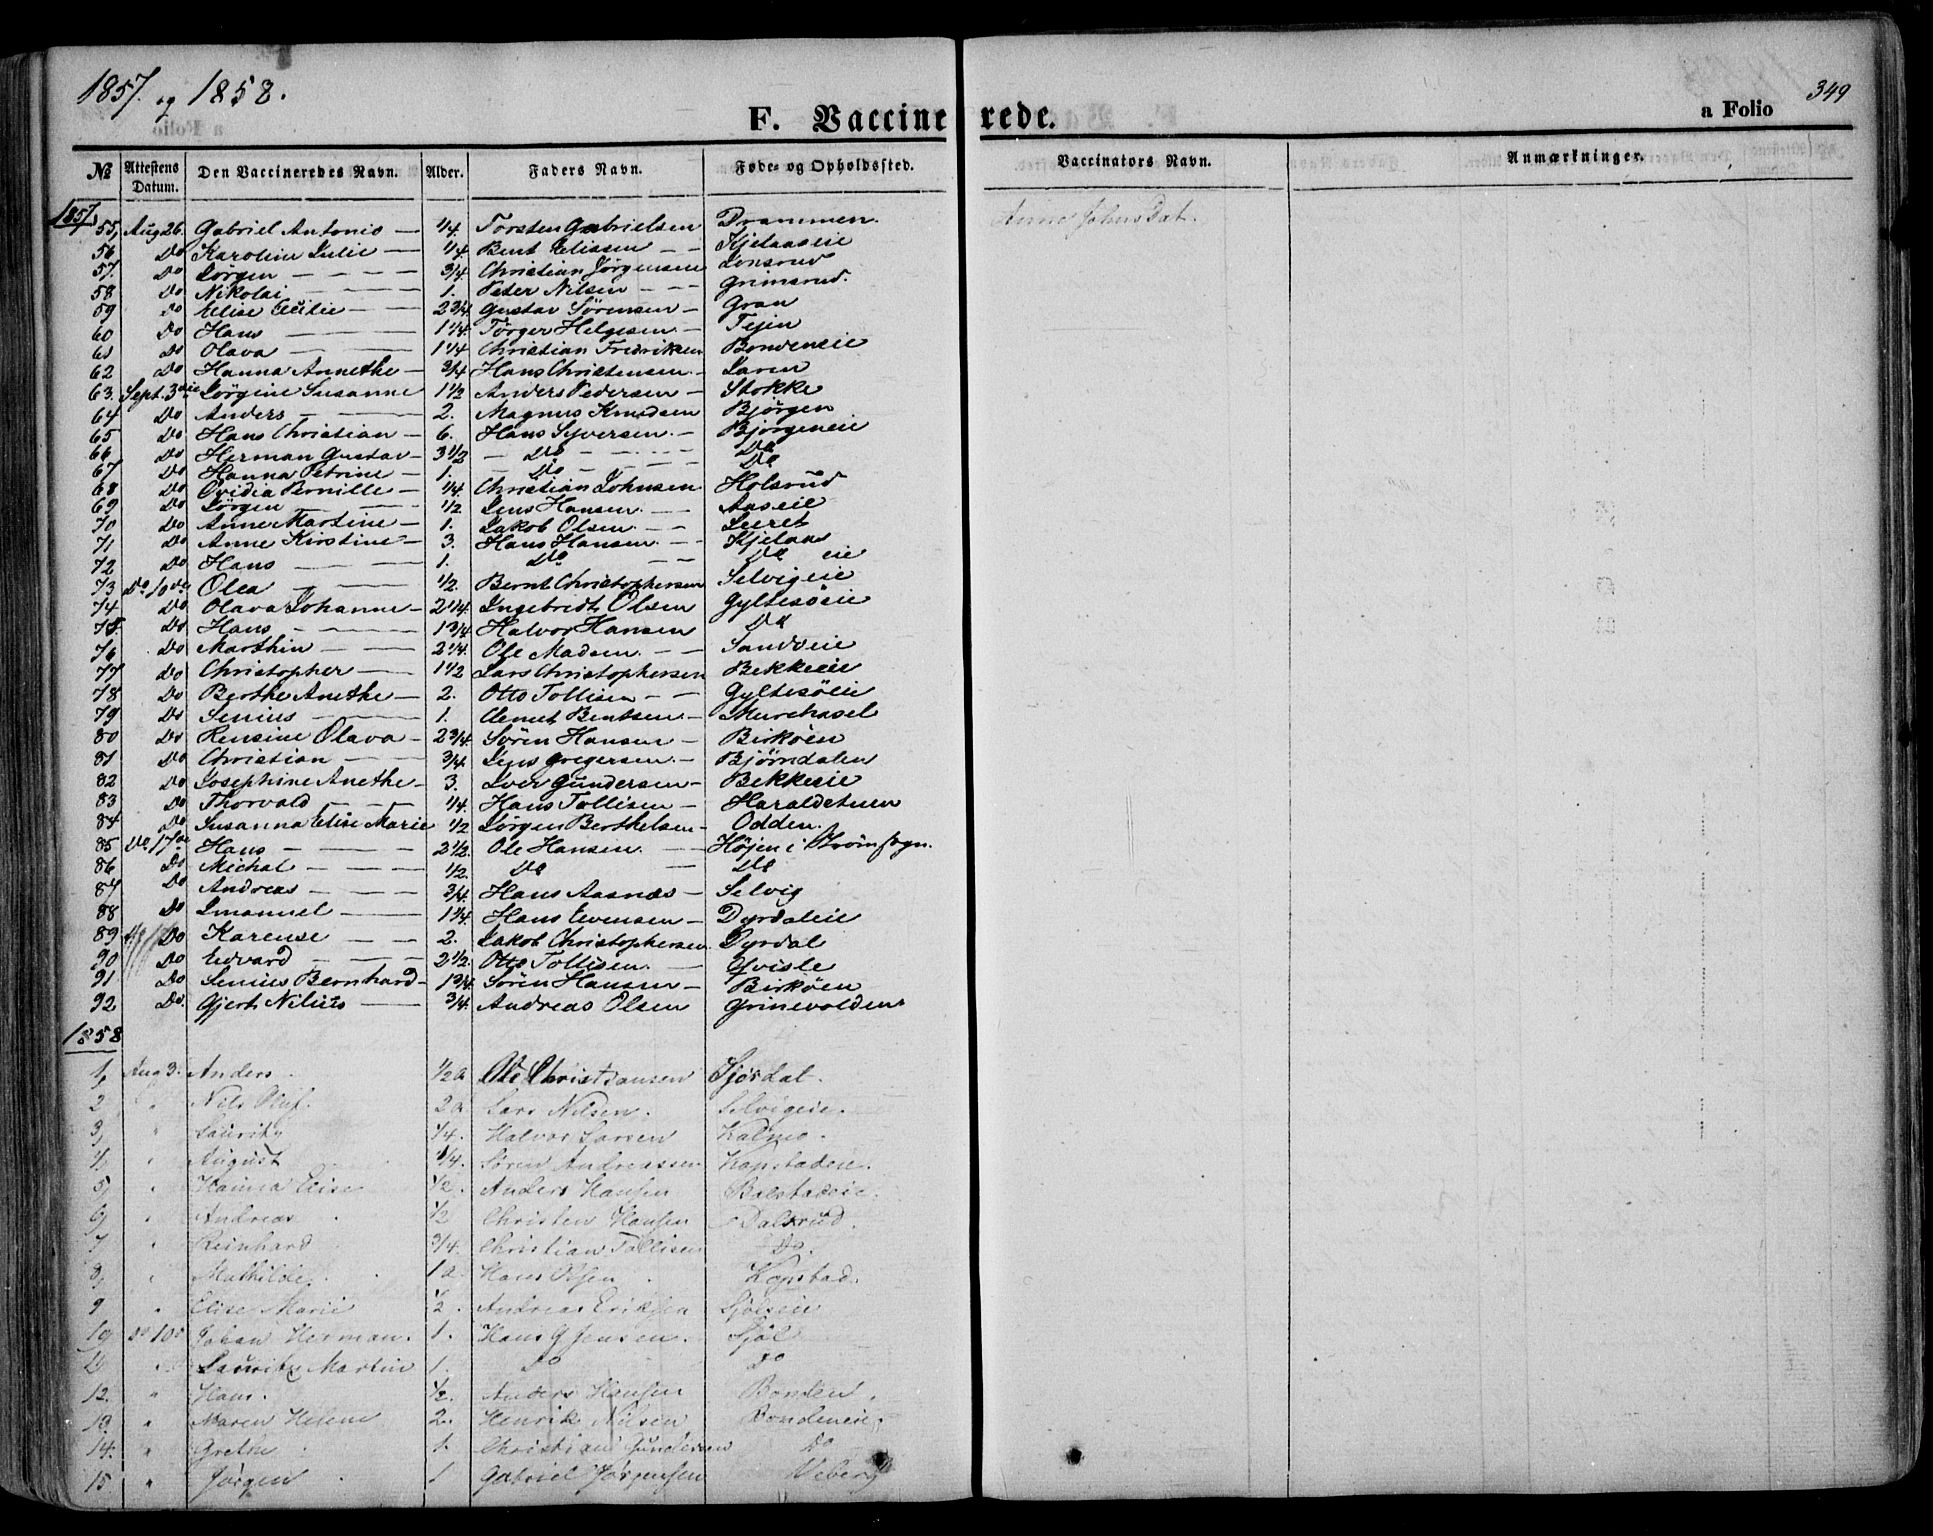 1857. og 1858.
349
F. Vaccinerede.
a Folio
№ Attestens Datum. Den Vaccineredes Navn. Alder. Faders Navn. Føde- og Opholdssted. Vaccinators Navn. Anmærkninger.
1857
55, Aug 26. Gabriel Antonio — 1/4. Torsten Gabrielsen Drammen. Anne Johns Dat.
56 Do Karoline Julie — 1/4 Bent Eliassen — — Kjelaaseie
57. Do Jørgen — — — — 3/4 Christian Jørgensen Lonsrud
58 Do Nikolai — — — 1. Peter Nilsen — — — Grimsrud.
59 Do Elise Cecilie — — 2 3/4 Gustav Sørensen — Gran
60 Do Hans — — — 1 1/4. Tørger Helgesen — Tejen
61 Do Olava — — — 1 1/4 Christian Fredriksen Bondeneie
62 Do Hanna Annethe — 3/4 Hans Christensen — Saren
63. Sept. 3die Jørgine Susanne 1 1/2 Anders Pedersen — Stokke
64 Do Anders — — — 2. Magnus Knudsen Bjørgen
65 Do Hans Christian — 6. Hans Syversen. — Bjørgeneie
66 Do Herman Gustav — 3 1/2 — Do — — — Do
67 Do Hanna Petrine — 1. — Do — — — Do
68 Do Ovidia Pernille — 1/4. Christian Johnsen Holsrud
69 Do Jørgen — — — 1/2 Jens Hansen. — — Aaseie
70 Do Anne Martine — 1. Jakob Olsen — — Leeret
71 Do Anne Kirstine — 3. Hans Hansen — — Kjelaas
72 Do Hans — — — 1. Do — — Do eie
73 Do 10de Olea — — — 1/2 Bernt Christophersen Selvigeie
74 Do Olava Johanne — 2 1/4. Ingebridt Olsen Gyltesøeie
75. Do Hans — — — 1 3/4. Halvor Hansen Do
76 Do Marthin — — — 2 1/4. Ole Madsen — — Sandveie
77 Do Christopher — — 1 1/2 Lars Christophersen Bekkeeie
78 Do Berthe Anethe — 2. Otto Tollisen — — Gyltesøeie
79 Do Senius — — — 1. Clemet Bentsen — Murchasel
80 Do Rensine Olava — 2 3/4. Søren Hansen — Birkøen
81 Do Christian — — — 3/4 Jens Gregersen — Bjørndalen
82 Do Josephine Anethe — 3. Iver Gundersen — Bekkeeie
83 Do Thorvald — — — 1/4. Hans Tollisen — Haraldstuen
84 Do Susanna Elise Marie 1/2 Jørgen Berthelsen — Odden.
85 Do 17de Hans — — — 2 1/2. Ole Hansen — — Højen i Strømsogn.
86 Do Michal — — — 1/2. Do — Do
87 Do Andreas — — — 3/4. Hans Aasnæs — Selvig
88 Do Imanuel — — — 1 1/4. Hans Evensen — Dyrdaleie
89 Do Karense — — 2. Jakob Christophersen Dyrdal
90 Do Edvard — — — 2 1/2. Otto Tollisen. — Qvisle
91. Do Senius Bernhard — 1 3/4. Søren Hansen — Birkøen
92 Do. Gjert Nilius — — 3/4. Andreas Olsen Grinevolden
1858
1, Aug 3. Anders. 1/2 a Ole Christiansen Sjøsdal.
2 " Nils Oluf. 2 a Lars Nilsen. Selvigeie.
3, " Lauritz 1/4. Halvor Larsen Kalmo.
4, " August 1/4. Søren Andreassen Kopstadeie.
5, " Hanna Elise 1/2. Anders Hansen Bolstadeie.
6, " Andreas 1/2 Christen Hansen Dalsrud.
7 " Reinhard 3/4. Christian Tollisen Do.
8, " Mathilde. 1 a. Hans Olsen Kopstad.
9 " Elise Marie 1/2. Andreas Eriksen Sjølseie
10 Do 10de Johan Herman. 1. Hans G Jensen. Sjøl
11 " Lauritz Martin 1. Do Do
12. " Hans. 1/2. Anders Hansen Bonden.
13. " Maren Helene 2. Henrik Nilsen Bondeneie,
14. " Grethe 1. Christian Gundersen Do
15 " Jørgen 1 Gabriel Jørgensen Aeberg